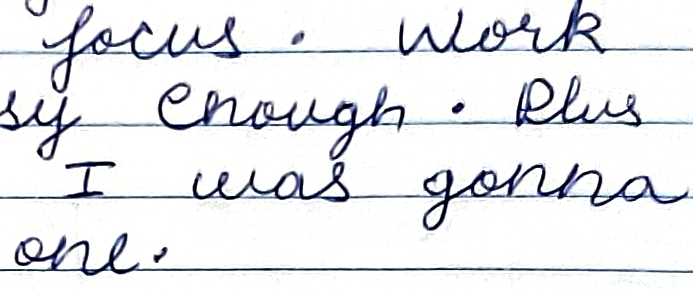 focus. Work
sy enough. Plus
I was gonna
one.